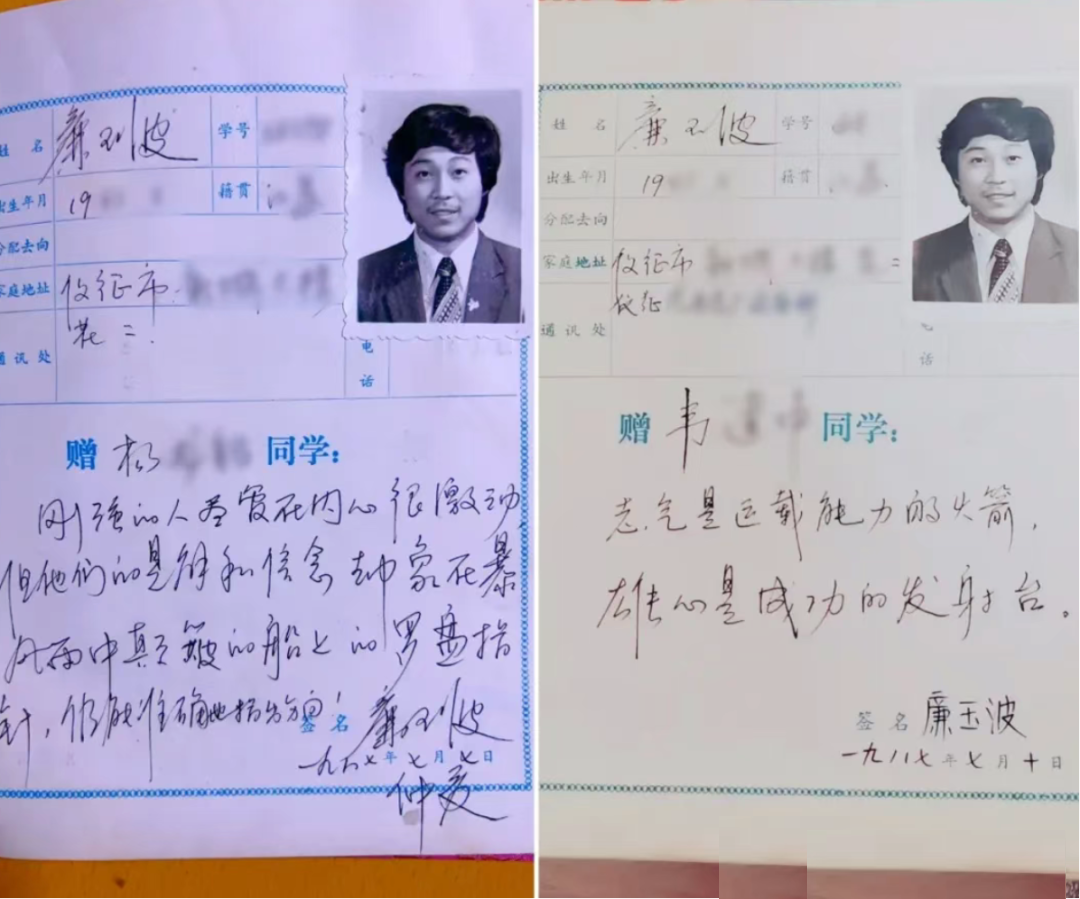 姓 名 廉玉波 学号
出生年月 19 籍贯 江
分配去向
家庭地址 仪征市
花二
通讯处 电话
赠 杨 同学：
刚强的人尽管在内心很激动，
但他们的见解和信念却象在暴
风雨中颠簸的船上的罗盘指
针，仍能准确地指出方向！
签名 廉玉波
一九八七年七月七日
仲夏
姓 名 廉玉波 学号
出生年月 19 籍贯 江
分配去向
家庭地址 仪征市 二
仪征
通讯处 电话
赠 韦 同学：
志气是运载能力的火箭，
雄心是成功的发射台。
签名 廉玉波
一九八七年七月十日